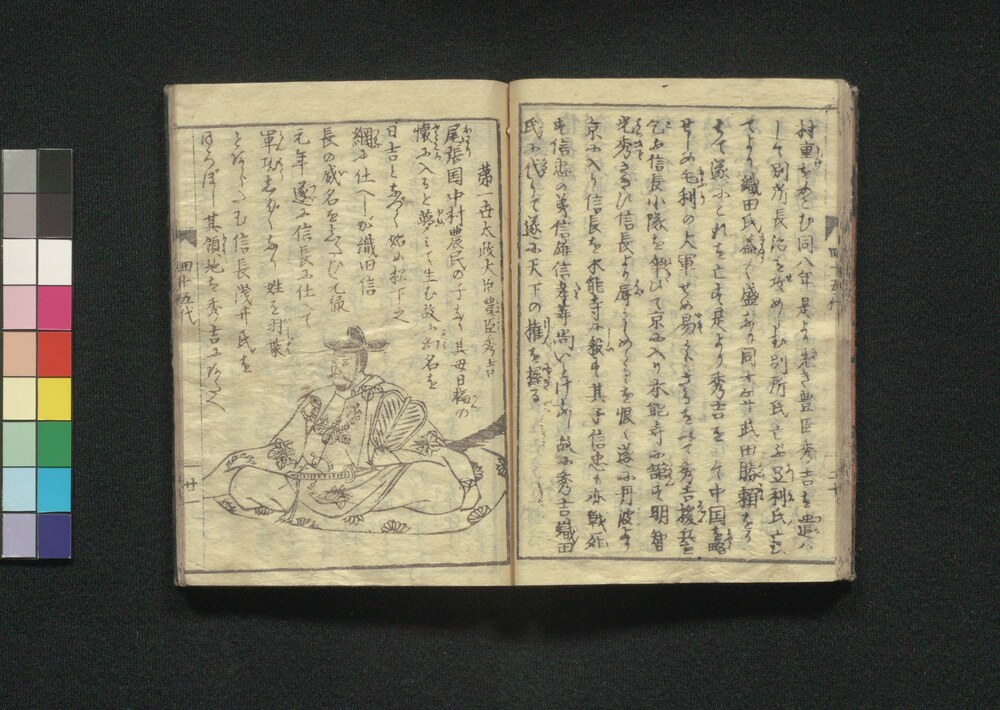 村重をせめしむ同八年是より先き豊臣秀吉を遣ハ
して別所長治を攻めしむ別所氏亡ぶ足利氏亡
てより織田氏益〻盛なり同十年武田勝頼をう
ちて遂ふこれを亡す是より秀吉をして中国を略
せしめ毛利の大軍せめ易からざるを以て秀吉援兵を
乞ふ信長小隊を率ひて京ふ入り本能寺ふ館す明智
光秀さきに信長より辱しめらるを恨〻遂ふ丹波より
京ふ入り信長を本能寺ふ殺す其子信忠も亦戦死
す信忠の弟信雄信孝等尚いとけなし故ふ秀吉織田
氏ふ代りて遂ふ天下の権を握る
第一世太政大臣豊臣秀吉
尾張国中村農民の子なり其母日輪の
懐ふ入ると夢ミて生む故ふ幼名を
日吉と名づく始め松下之
綱ふ仕へしが織田信
長の威名をしたひ元亀
元年遂ふ信長ふ仕て
軍功しば〳〵あり姓を羽柴
とあらたむ信長浅井氏を
ほろぼし其領地を秀吉ふあたへ